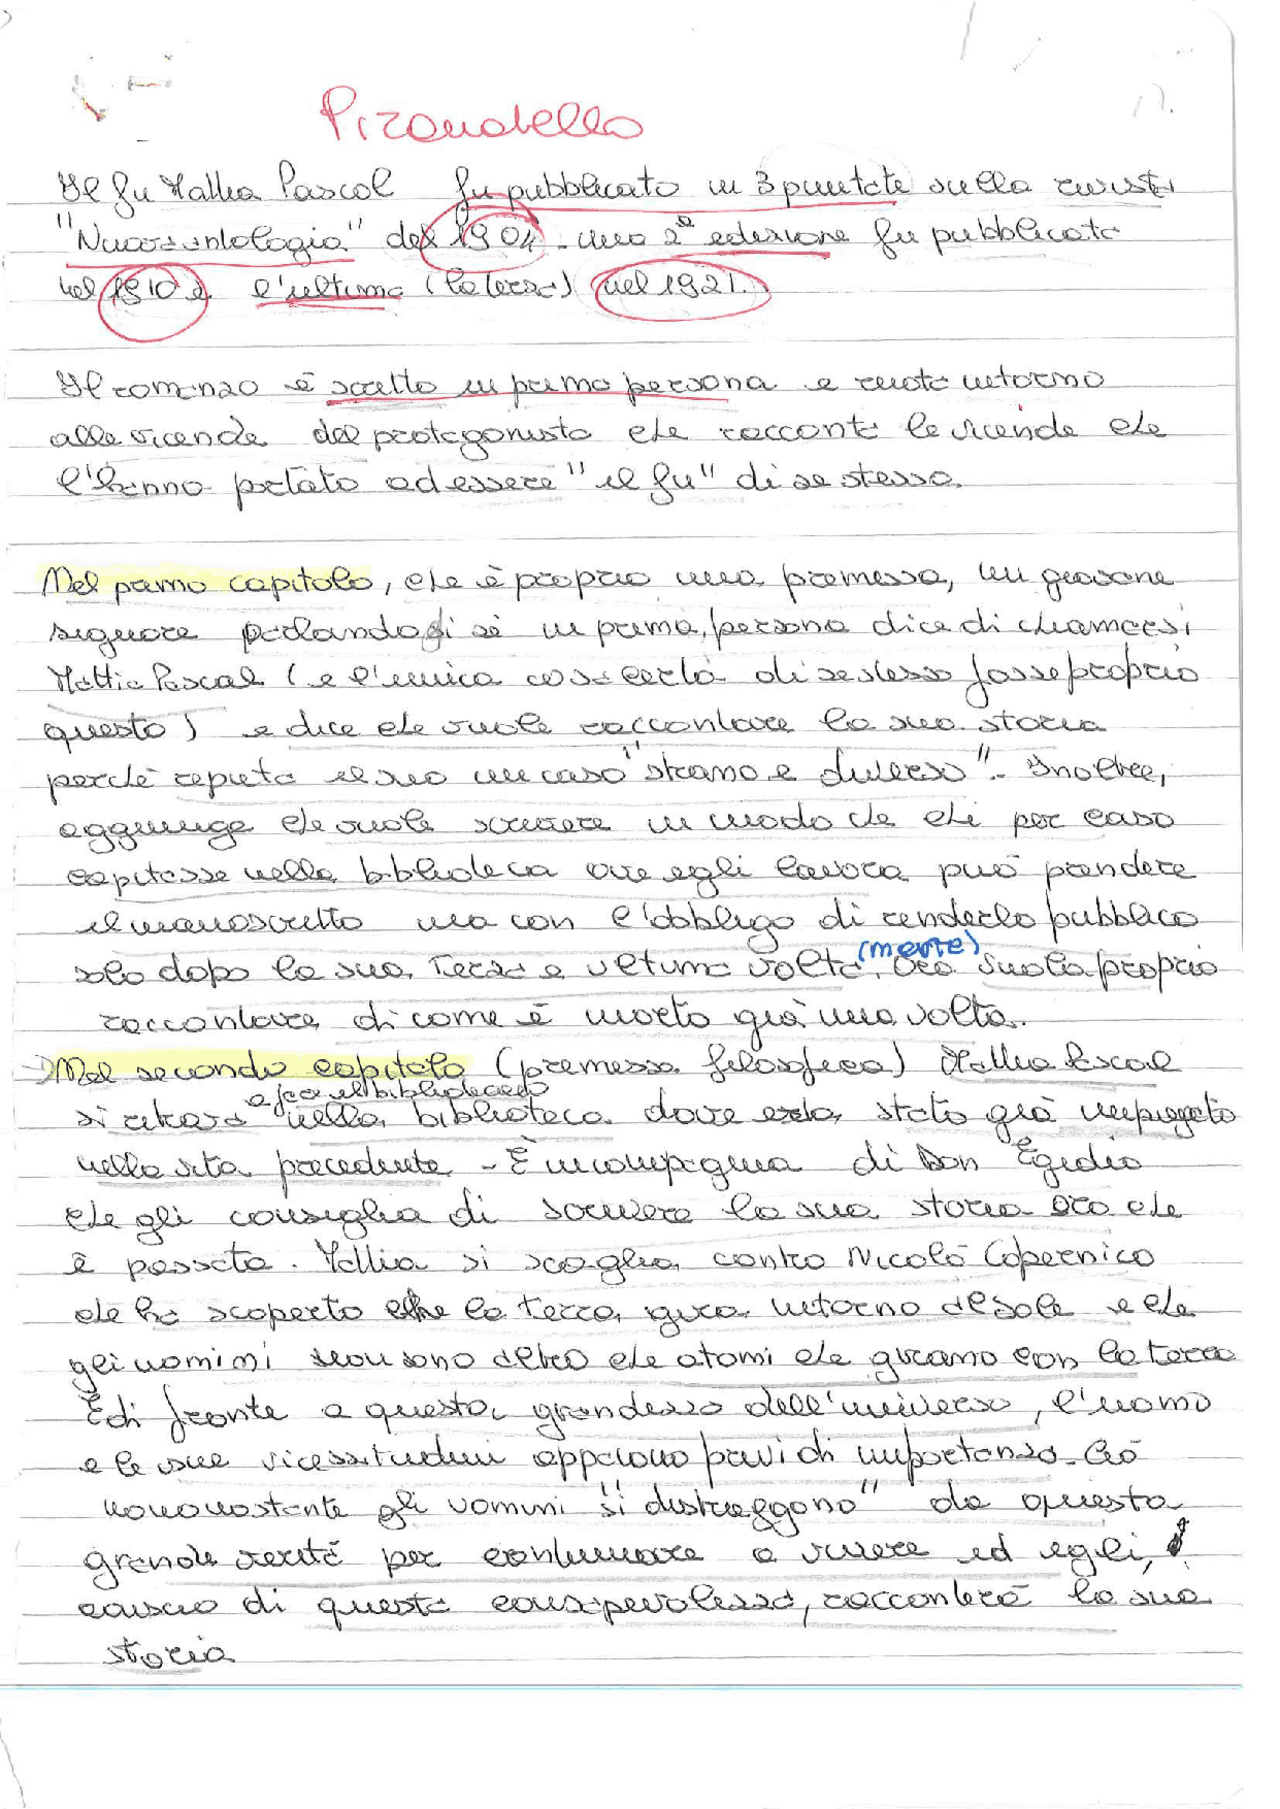 Pirandello
Il fu Mattia Pascal fu pubblicato in 3 puntate sulla rivista
"Nuova antologia" del 1904 - una 2ª edizione fu pubblicata
nel 1910 e l'ultima (la terza) nel 1921.
Il romanzo è scritto in prima persona e ruota intorno
alle vicende del protagonista che racconta le vicende che
l'hanno portato ad essere "il fu" di se stesso.
Nel primo capitolo, che è proprio una premessa, un giovane
signore parlando di sé in prima persona dice di chiamarsi
Mattia Pascal (e l'unica cosa certa di se stesso fosse proprio
questo) e dice che vuole raccontare la sua storia
perché reputa il suo un caso "strano e diverso". Inoltre,
aggiunge che vuole scrivere in modo che chi per caso
capitasse nella biblioteca ove egli lavora può prendere
il manoscritto ma con l'obbligo di renderlo pubblico
solo dopo la sua terza e ultima volta. (morte) Ora vuole proprio
raccontare di come è morto già una volta.
→ Nel secondo capitolo (premessa filosofica) Mattia Pascal
a fare il bibliotecario
si ritrova nella biblioteca dove era stato già impiegato
nella vita precedente - È in compagnia di Don Egidio
che gli consiglia di scrivere la sua storia ora che
è passata. Mattia si scaglia contro Nicolò Copernico
che ha scoperto che la terra gira intorno al sole e che
gli uomini non sono altro che atomi che girano con la terra
E di fronte a questa grandezza dell'universo, l'uomo
e le sue vicessitudini appaiono privi di importanza. Ciò
nonostante gli uomini "si distraggono" da questa
grande verità per continuare a vivere ed egli,
conscio di questa consapevolezza, racconterà la sua
storia